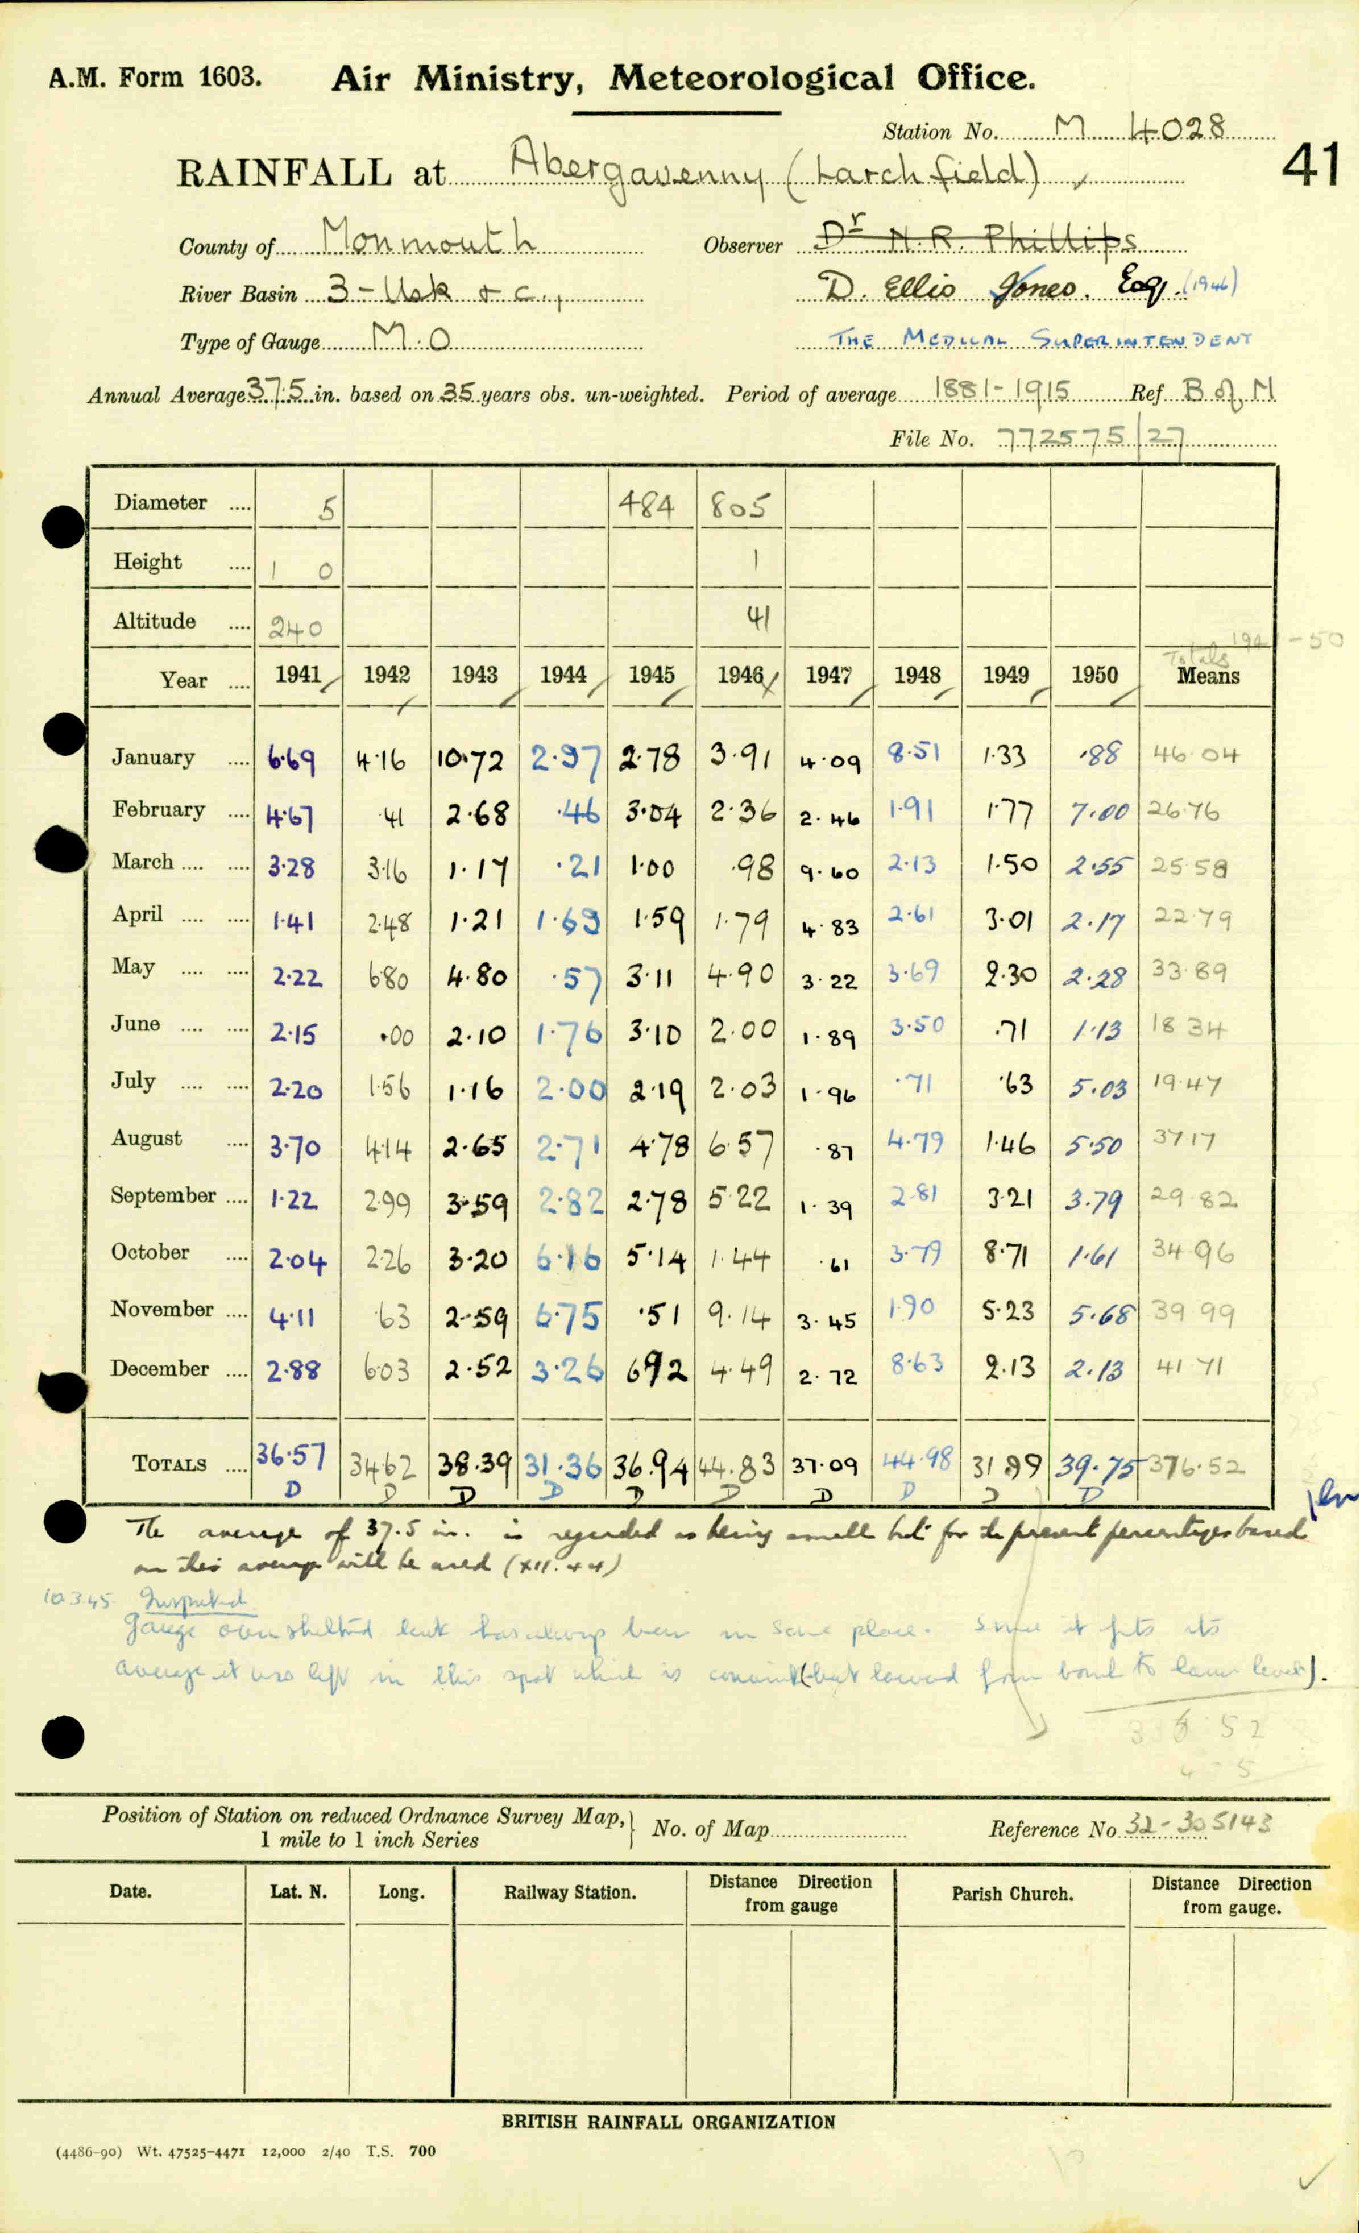 A.M. Form 1603. Air Ministry, Meteorological Office.
Station No. M 4028
41
RAINFALL at Abergavenny (Larchfield)
County of Monmouth Observer Dr N.R. Phillips
River Basin 3 - Usk & c., D. Ellis Jones. Esq. (1946)
Type of Gauge M.O THE MEDICAL SUPERINTENDENT
Annual Average 37.5 in. based on 35 years obs. un-weighted. Period of average 1881-1915 Ref. B of M
File No. 772575/27
Diameter .... 5 484 805
Height .... 1 0 1
Altitude .... 240 41
Totals 1941-50
Year .... 1941 1942 1943 1944 1945 1946 1947 1948 1949 1950 Means
January .... 6.69 4.16 10.72 2.97 2.78 3.91 4.09 8.51 1.33 .88 46.04
February .... 4.67 .41 2.68 .46 3.04 2.36 2.46 1.91 1.77 7.00 26.76
March .... .... 3.28 3.16 1.17 .21 1.00 .98 9.60 2.13 1.50 2.55 25.58
April .... .... 1.41 2.48 1.21 1.69 1.59 1.79 4.83 2.61 3.01 2.17 22.79
May .... .... 2.22 6.80 4.80 .57 3.11 4.90 3.22 3.69 2.30 2.28 33.89
June .... .... 2.15 .00 2.10 1.76 3.10 2.00 1.89 3.50 .71 1.13 18.34
July .... .... 2.20 1.56 1.16 2.00 2.19 2.03 1.96 .71 .63 5.03 19.47
August .... 3.70 4.14 2.65 2.71 4.78 6.57 .87 4.79 1.46 5.50 37.17
September .... 1.22 2.99 3.59 2.82 2.78 5.22 1.39 2.81 3.21 3.79 29.82
October .... 2.04 2.26 3.20 6.16 5.14 1.44 .61 3.79 8.71 1.61 34.96
November .... 4.11 .63 2.59 6.75 .51 9.14 3.45 1.90 5.23 5.68 39.99
December .... 2.88 6.03 2.52 3.26 6.92 4.49 2.72 8.63 2.13 2.13 41.71
TOTALS .... 36.57 34.62 38.39 31.36 36.94 44.83 37.09 44.98 31.99 39.75 376.52
D D D D D D D D D D
The average of 37.5 in. is regarded as being small but for the present percentages based
on this average will be used (XII.44)
10.3.45 Inspected
Gauge over sheltered has always been in same place. Since it fits its
average it was left in this spot which is (but lowered from to lawn level).
52
Position of Station on reduced Ordnance Survey Map, 1 mile to 1 inch Series No. of Map Reference No 32-305143
Date. Lat. N. Long. Railway Station. Distance from gauge Direction Parish Church. Distance Direction from gauge.
BRITISH RAINFALL ORGANIZATION
(4486-90) Wt. 47525-4471 12,000 2/40 T.S. 700